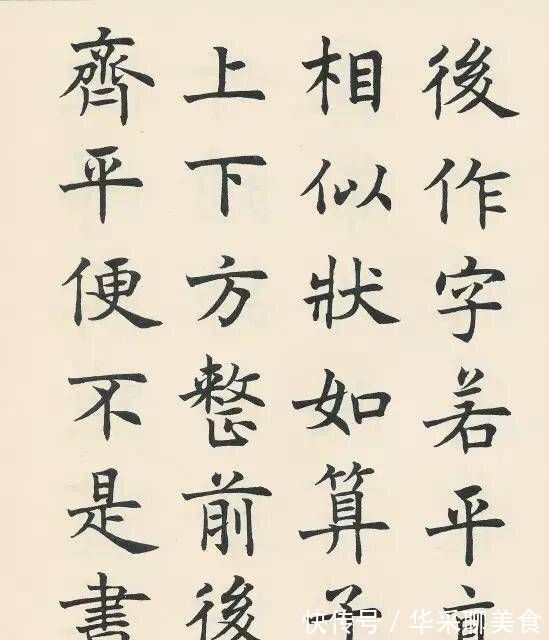 後作字若平
相似狀如算
上下方整前後
齊平便不是書
快传号 / 华采聊美食